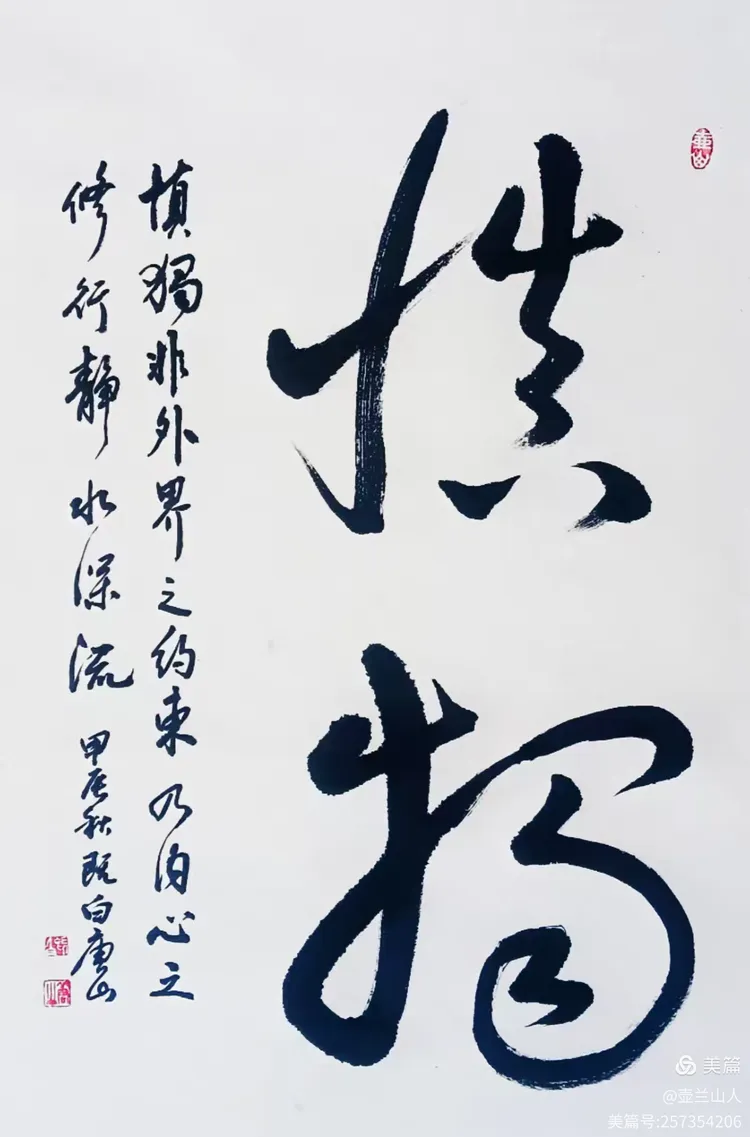 慎獨
慎獨非外界之约束乃内心之
修行靜水深流
甲辰秋既白
美篇
@壶兰山人
美篇号:257354206